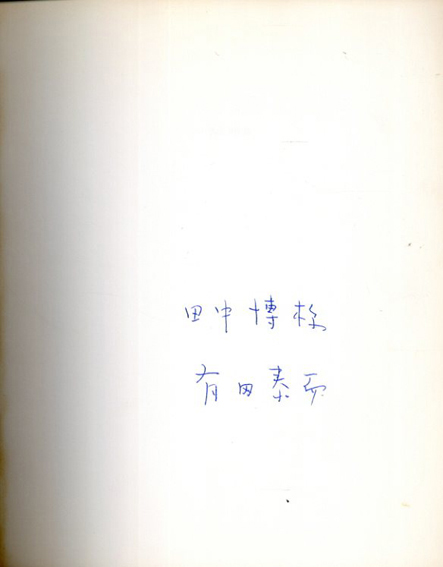 田中博様
有田泰而